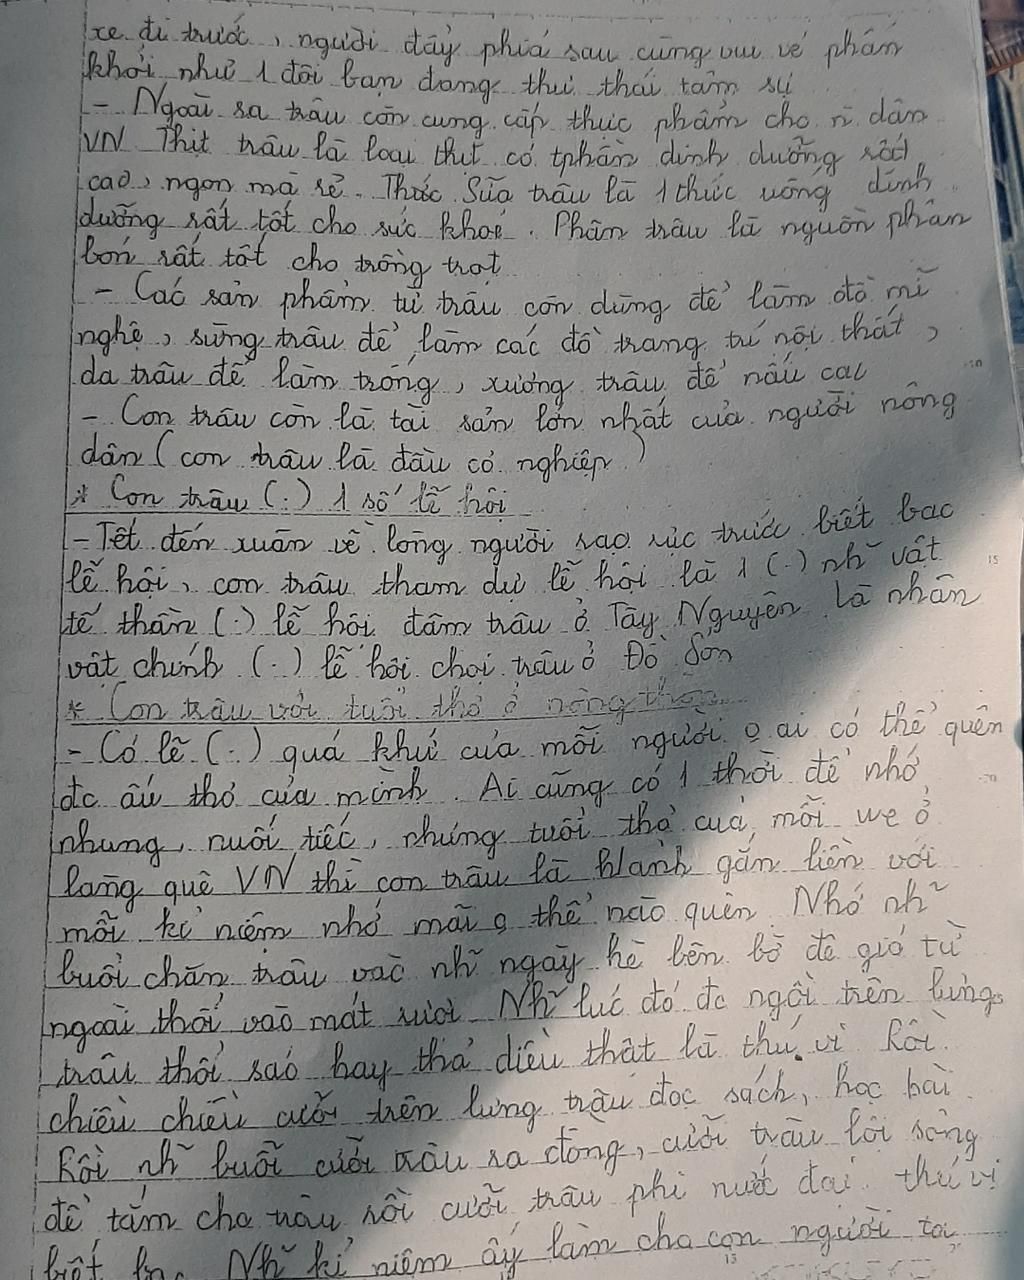 xe đi trước, người đẩy phía sau cũng vui vẻ phấn
khởi như 1 đôi bạn đang thư thái tâm sự
- Ngoài ra trâu còn cung cấp thực phẩm cho n dân
VN Thịt trâu là loại thịt có tphần dinh dưỡng rất
cao, ngon mà rẻ. Thức Sữa trâu là 1 thức uống dinh
dưỡng rất tốt cho sức khoẻ. Phân trâu là nguồn phân
bón rất tốt cho trồng trọt
- Các sản phẩm từ trâu còn dùng để làm đồ mĩ
nghệ, sừng trâu để làm các đồ trang trí nội thất,
da trâu để làm trống, xương trâu để nấu cao
- Con trâu còn là tài sản lớn nhất của người nông
dân (con trâu là đầu cơ nghiệp)
* Con trâu (.) 1 số lễ hội
- Tết đến xuân về lòng người rạo rực trước biết bao
lễ hội, con trâu tham dự lễ hội là 1 (.) nh~ vật
tế thần (.) lễ hội đâm trâu ở Tây Nguyên là nhân
vật chính (.) lễ hội chọi trâu ở Đồ Sơn
* Con trâu với tuổi thơ ở nông thôn
- Có lẽ (.) quá khứ của mỗi người o ai có thể quên
đc ấu thơ của mình. Ai cũng có 1 thời để nhớ
nhung, nuối tiếc, những tuổi thơ của mỗi we ở
làng quê VN thì con trâu là h/ảnh gắn liền với
mỗi kỉ niệm nhớ mãi o thể nào quên Nhớ nh~
buổi chăn trâu vào nh~ ngày hè bên bờ đê gió từ
ngoài thổi vào mát rượi Nh~ lúc đó đc ngồi trên lưng
trâu thổi sáo hay thả diều thật là thú vị Rồi
chiều chiều cưỡi trên lưng trâu đọc sách, học bài
Rồi nh~ buổi cưỡi trâu ra đồng, cưỡi trâu lội sông
để tắm cho trâu rồi cưỡi trâu phi nước đại thú vị
biết bao Nh~ kỉ niệm ấy làm cho con người ta